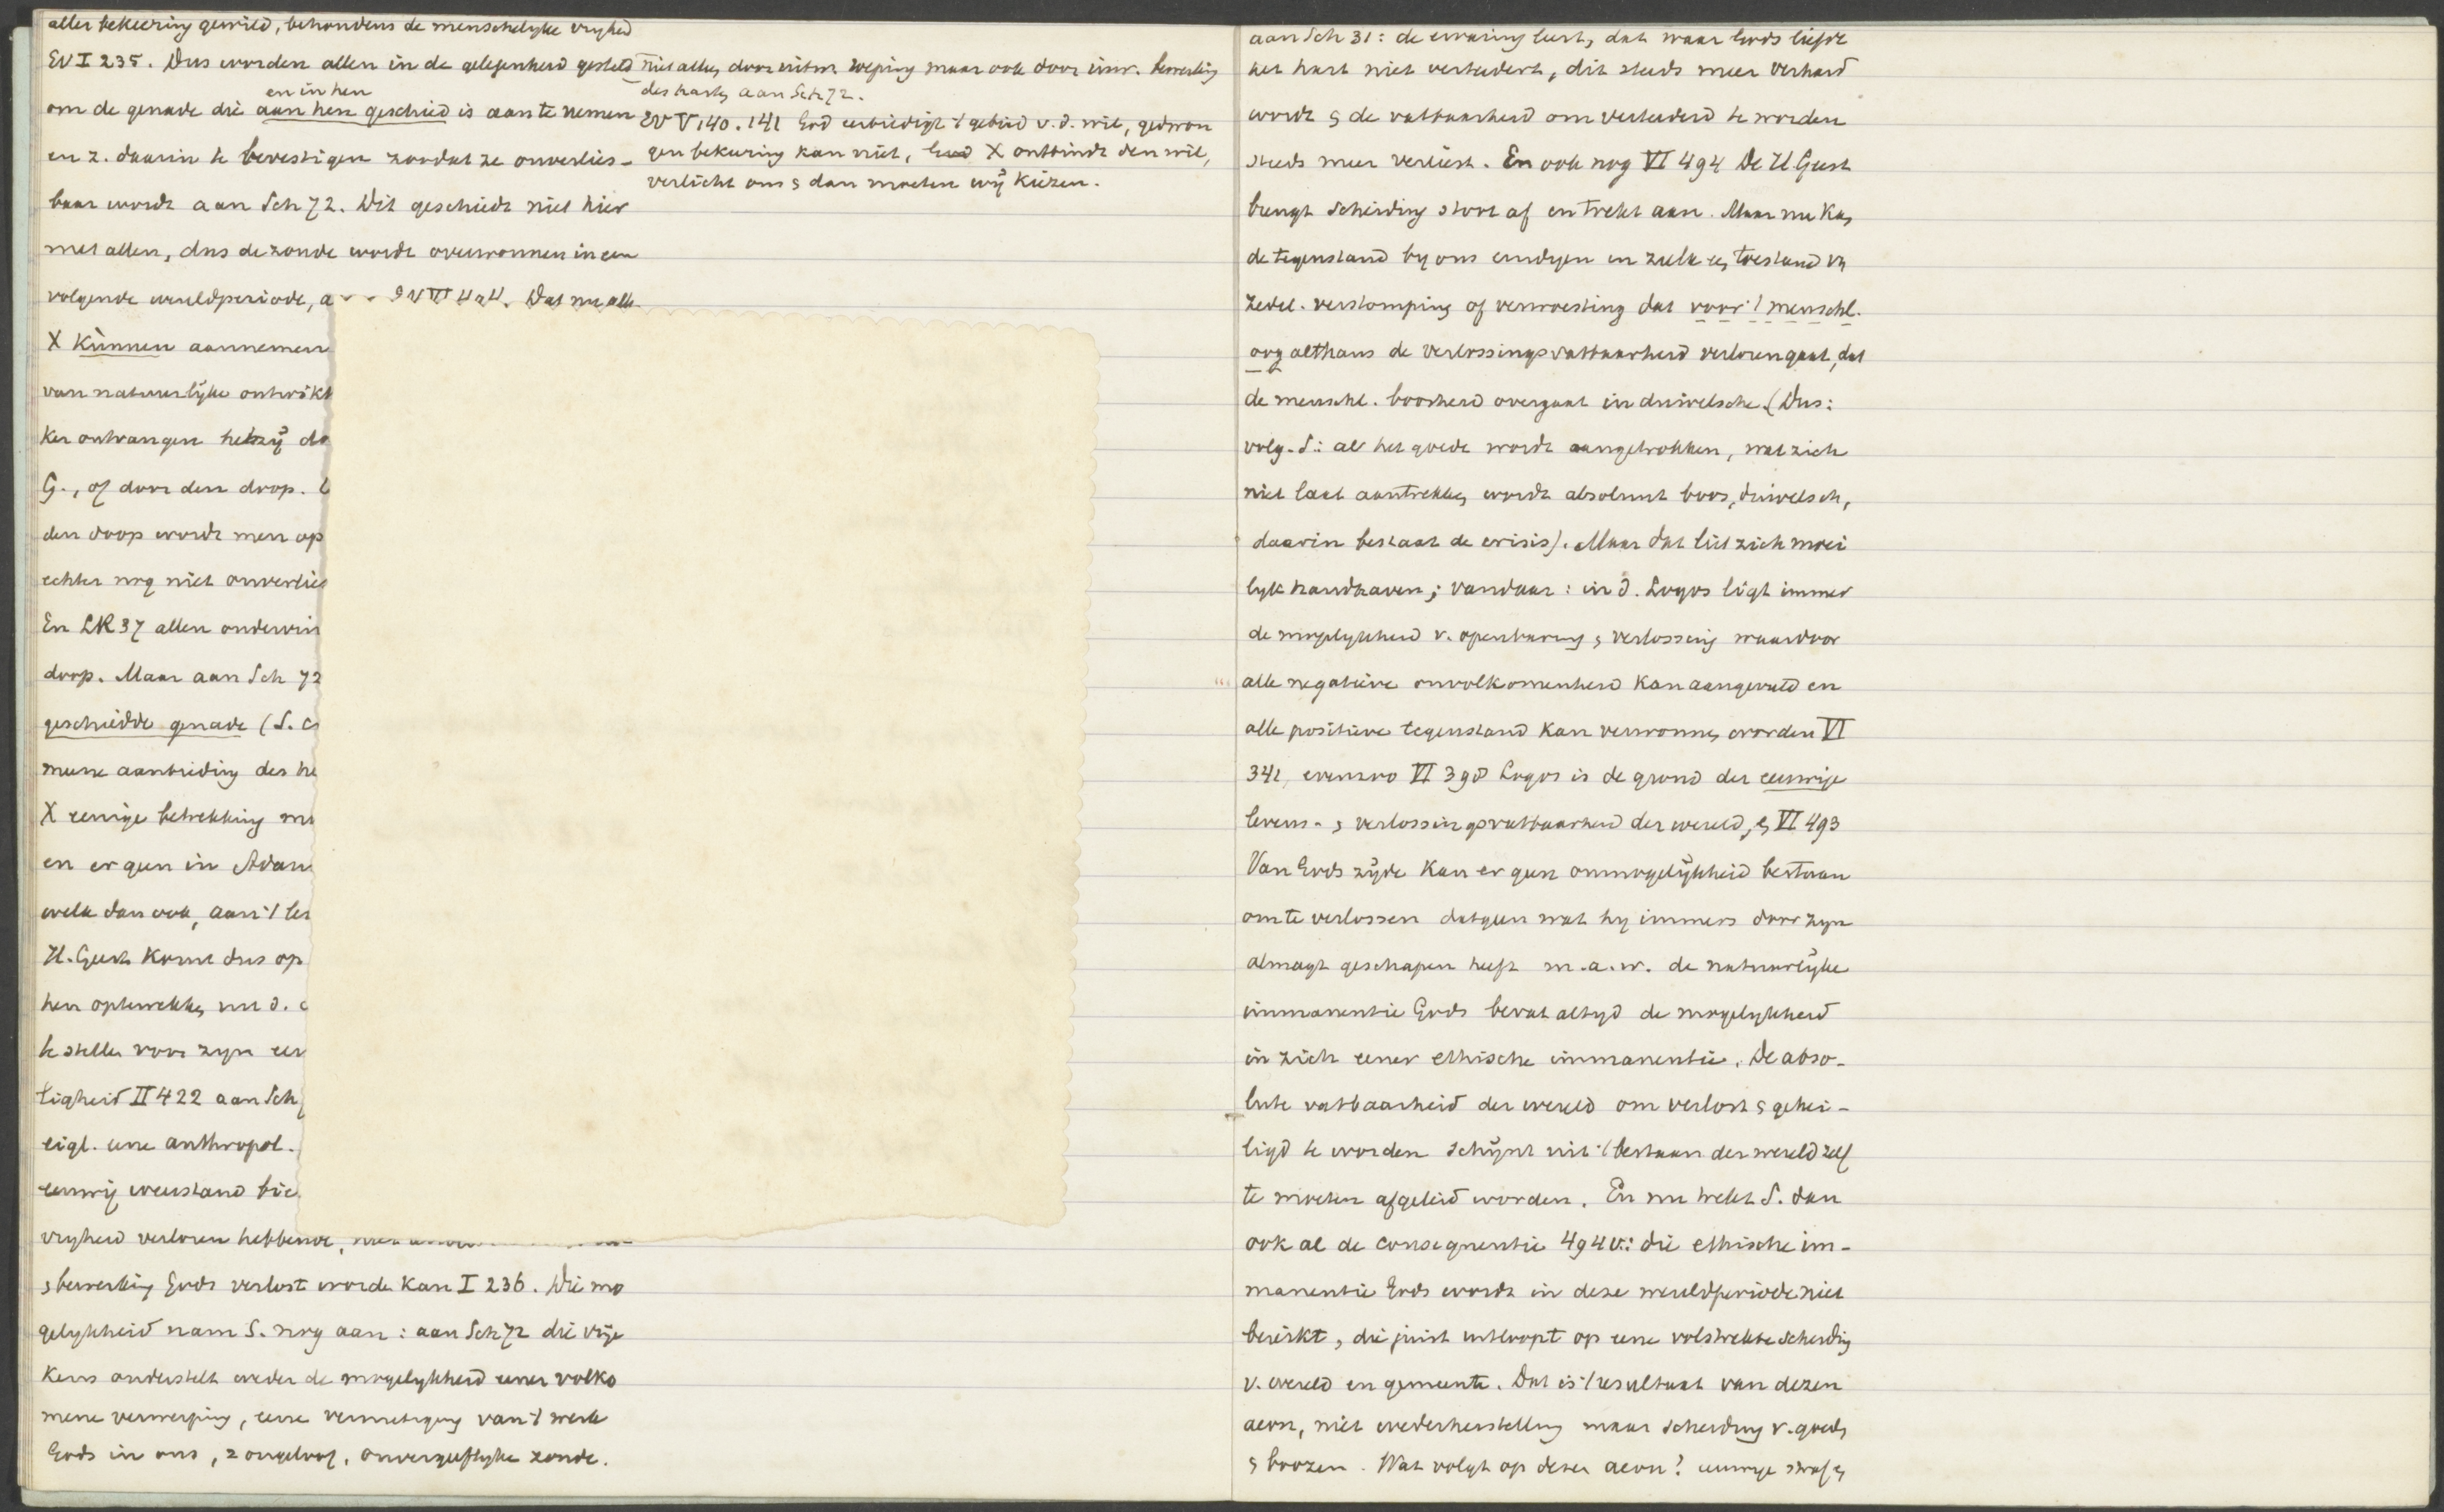 aller bekeering gewild, behoudens de menschelyke vryheid
EV I 235. Dus worden allen in de gelegenheid gesteld
en in hen
om de genade die aan hen geschied is aan te nemen
en z. daarin te bevestigen zoodat ze onverlies-
baar wordt aan Sch 72. Dit geschiedt niet hier
met allen, dus de zonde wordt overwonnen in een
volgende wereldperiode, a
X kunnen aannemen
van natuurlyke ontwikk
ker ontvangen hetzij do
G., of door den doop.
den doop wordt men op
echter nog niet onverlies
En LR 37 allen onderwin
doop. Maar aan Sch 72
geschiedde genade (S.
mene aanbieding des he
X eenige betrekking
en er geen in Adam
welk dan ook, aan 't
H. Geest komt dus op
hen opterwekken,
te stellen voor zyn
tigheid II 422 aan Sch
eigl. eene anthropol.
eeuwig weerstand bie
vryheid verloren hebbende,
s bewerking Gods verlost worden kan I 236. Die mo
gelykheid nam S. nog aan: aan Sch 72 die vrije
keus onderstelt weder de mogelykheid eener volko
mene verwerping, eene vernietiging van 't werk
Gods in ons, z ongeloof, onvergeeflyke zonde.
niet alleen door uitw. roeping maar ook door inw. bewerking
des harten aan Sch 72.
EV V 140. 141 God eerbiedigt 't gebied v. d. wil, gedwon
gen bekeering kan niet, X ontbindt den wil,
verlicht ons s dan moeten wij kiezen.
aan Sch 31: de ervaring leert, dat waar Gods liefde
het hart niet verteedert, dit steeds meer verhard
wordt s de vatbaarheid om verteederd te worden
steeds meer verliest. En ook nog VI 494 De H Geest
brengt scheiding stoot af en trekt aan. Maar nu kan
de tegenstand by ons eindigen in zulk een toestand van
zedel. verstomping of verwoesting dat voor 't menschl.
oog althans de verlossingsvatbaarheid verloren gaat, dat
de menschl. boosheid overgaat in duivelsche. (Dus:
volg. S: al het goede wordt aangetrokken, wat zich
niet laat aantrekken, wordt absoluut boos, duivelsch,
daarin bestaat de crisis). Maar dat liet zich moei
lyk handhaven; vandaar: in d. Logos ligt immer
de mogelykheid v. openbaring s verlossing waardoor
alle negatieve onvolkomenheid kan aangevuld en
alle positieve tegenstand kan verwonnen worden VI
341, evenzoo VI 390 Logos is de grond der eeuwige
levens- s verlossingsvatbaarheid der wereld, en VI 493
Van Gods zijde kan er geen onmogelijkheid bestaan
om te verlossen datgeen wat hy immers door zyn
almagt geschapen heeft m.a.w. de natuurlyke
immanentie Gods bevat altyd de mogelykheid
in zich eener ethische immanentie. De abso-
lute vatbaarheid der wereld om verlost s gehei-
ligd te worden schijnt uit 't bestaan der wereld zelf
te moeten afgeleid worden. En nu trekt S. dan
ook al de consequentie 494 v.: die ethische im-
manentie Gods wordt in deze wereldperiode niet
bereikt, die juist uitloopt op eene volstrekte scheiding
v. wereld en gemeente. Dat is 't resultaat van dezen
aeon, niet wederherstelling maar scheiding v. goeden
s boozen. Wat volgt op dezen aeon? eeuwige straf en